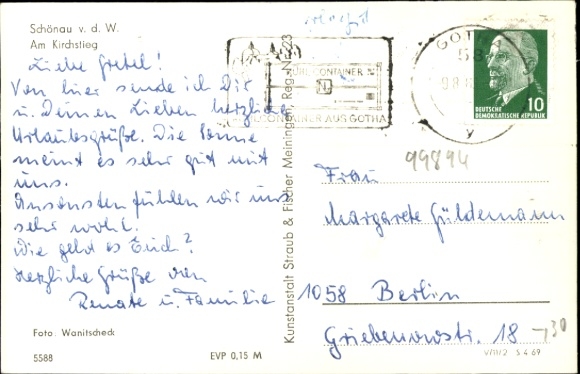 Schönau v. d. W.
Am Kirchstieg
Liebe Gretel!
Von hier sende ich Dir
u. Deinen Lieben herzliche
Urlaubsgrüße. Die Sonne
meint es sehr gut mit
uns.
Ansonsten fühlen wir uns
sehr wohl.
Wie geht es Euch?
Herzliche Grüße von
Renate u. Familie
Foto: Wanitscheck
5588
EVP 0,15 M
Kunstanstalt Straub & Fischer Meiningen, Reg.-Nr. 23
CONTAINER
CONTAINER AUS GOTHA
GOT
58
9.8.
y
10
DEUTSCHE
DEMOKRATISCHE REPUBLIK
99894
Frau
Margarete Güldemann
1058 Berlin
Griebenowstr. 18
-,30
V/11/2 S 4 69